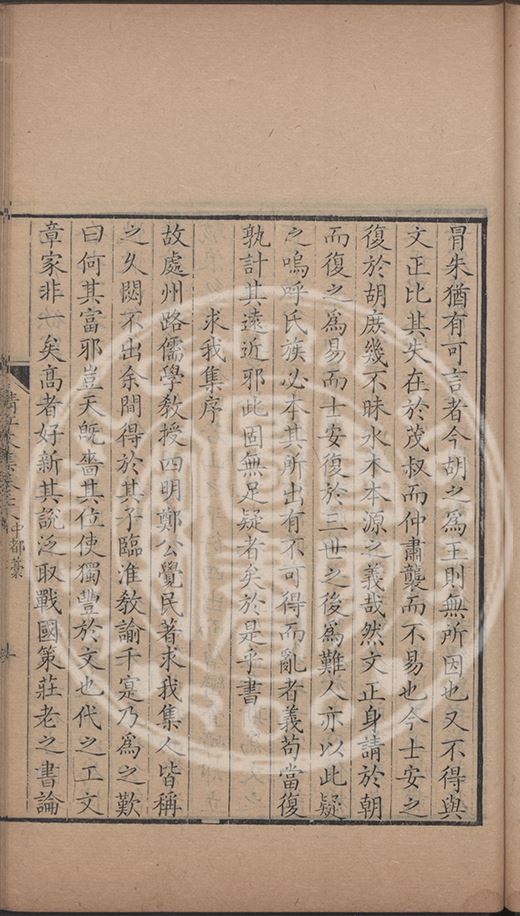 冐朱猶有可言者今胡之爲王則無所因也又不得與
文正比其失在於茂叔而仲肅襲而不易也今士安之
復於胡庻幾不昧水木本源之義哉然文正身請於朝
而復之爲易而士安復於三世之後爲難人亦以此疑
之嗚呼氏族必本其所出有不可得而亂者義苟當復
孰計其遠近邪此固無足疑者矣於是乎書
求我集序
故處州路儒學敎授四明鄭公覺民著求我集人皆稱
之久閟不出余間得於其子臨淮敎諭千㝎乃爲之歎
曰何其富邪豈天旣嗇其位使獨豐於文也代之工文
章家非一矣髙者好新其說泛取戰國策莊老之書論
中都藁